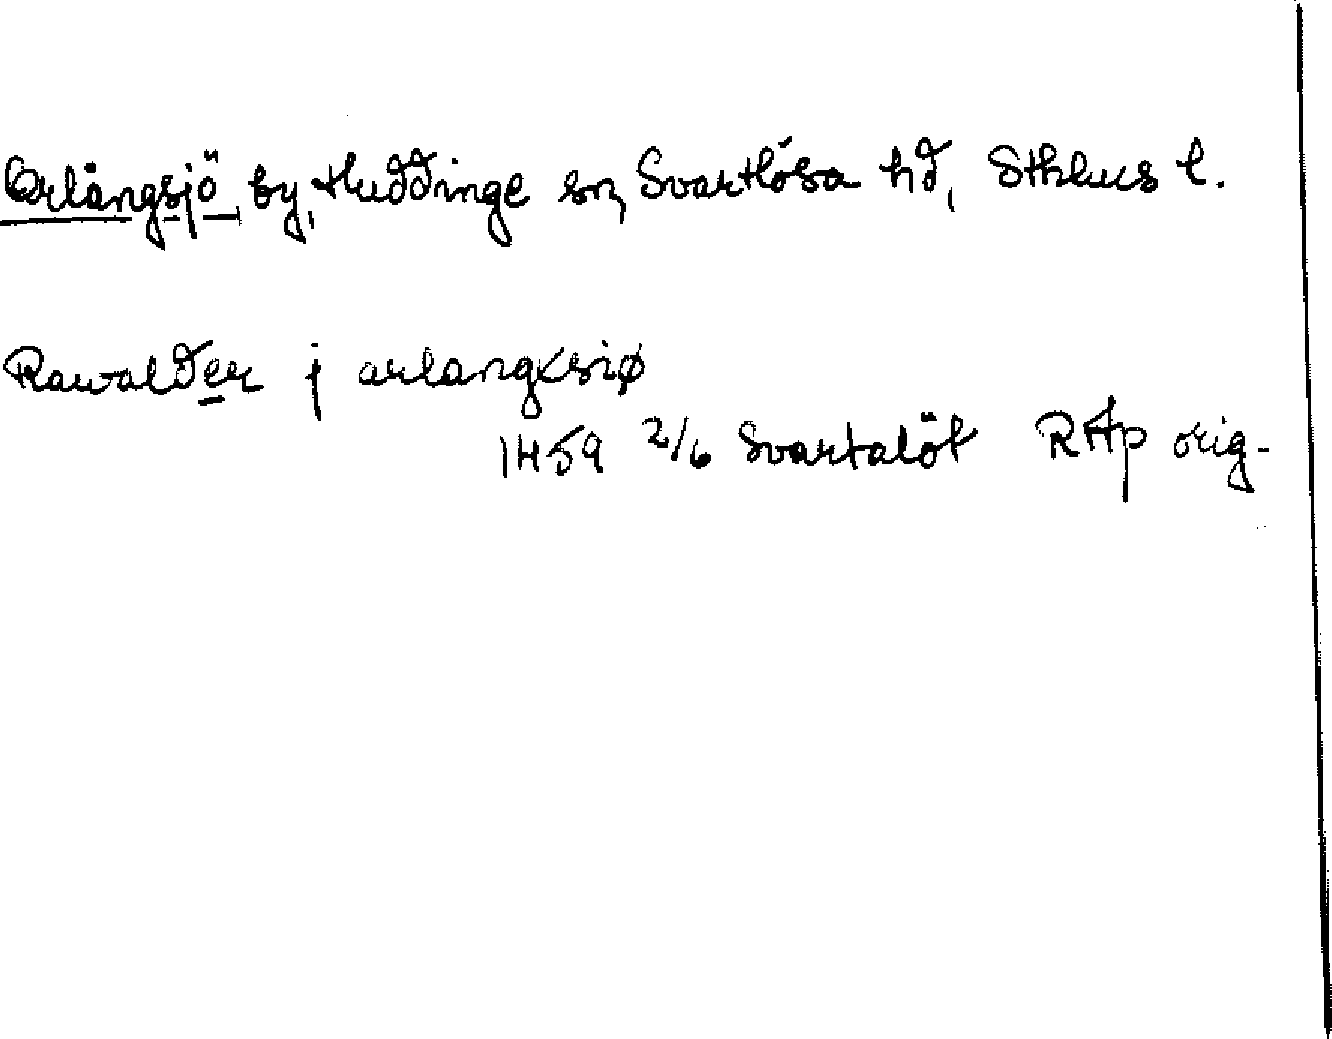 Orlångsjö, by, Huddinge sn, Svartlösa hd, Sthlms l.
Rawalder j arlangxsiø
1459 2/6 Svartalöt RAp orig.